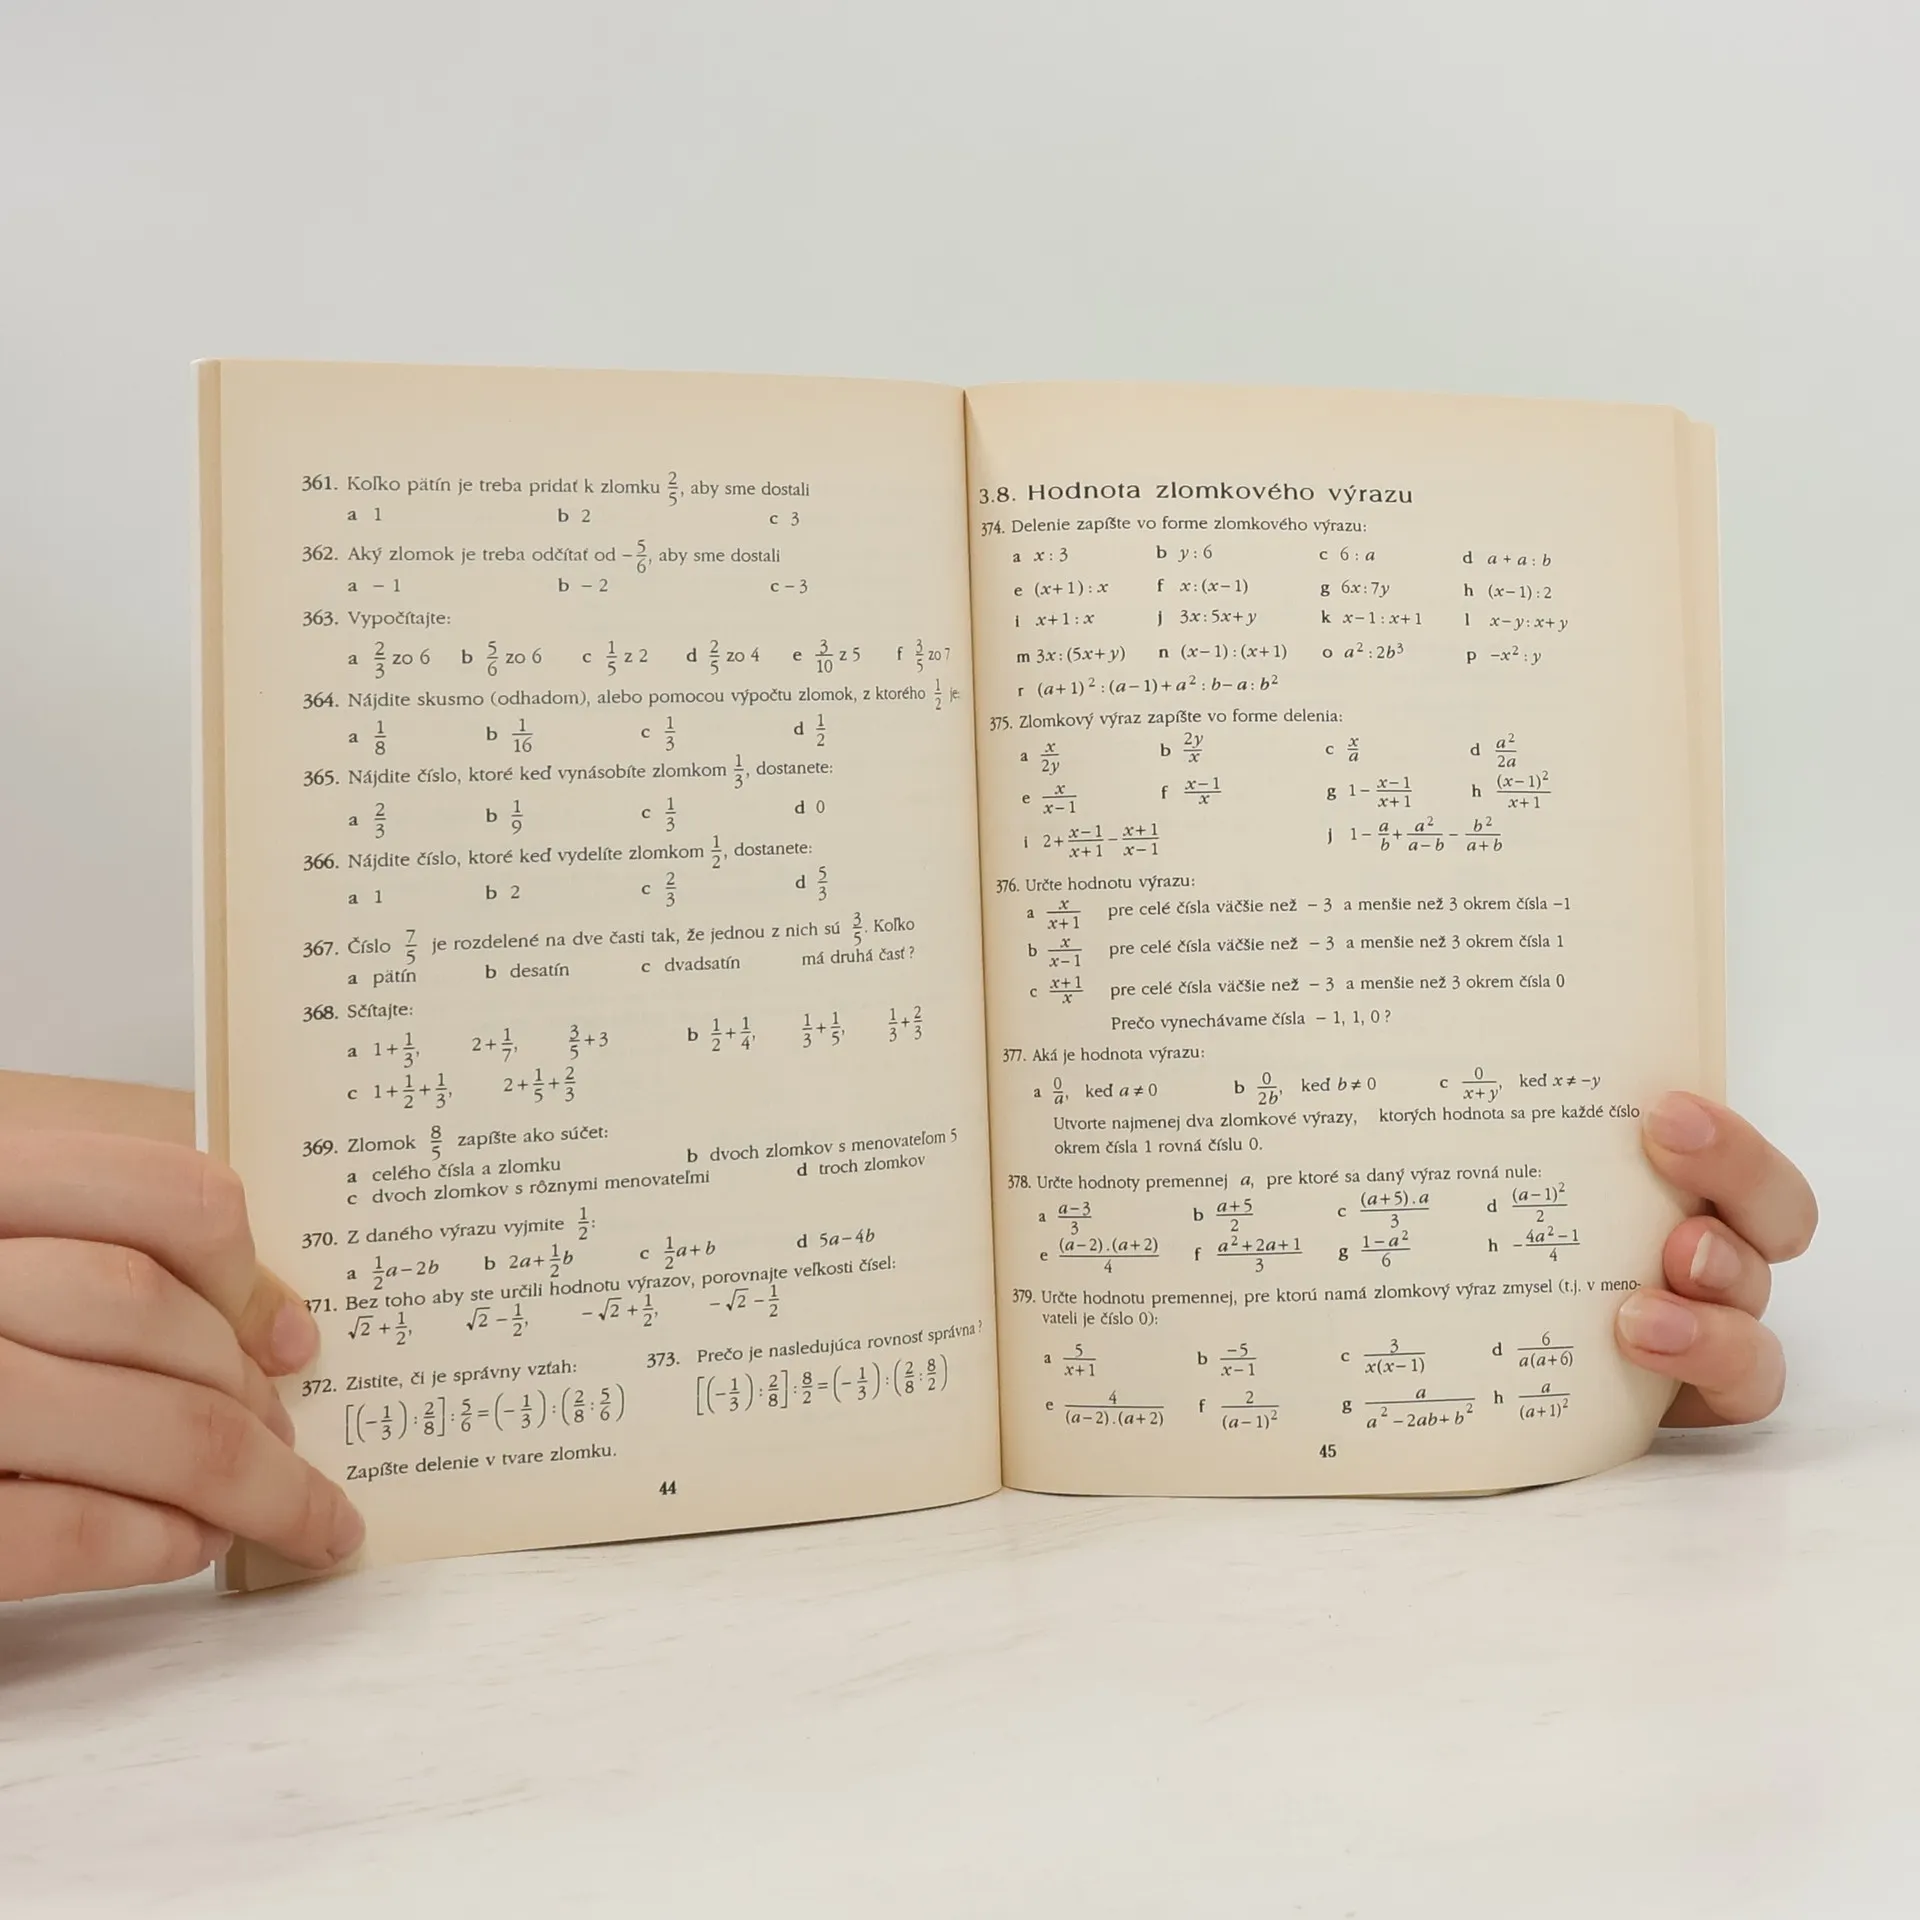 361. Koľko pätín je treba pridať k zlomku 2/5, aby sme dostali
a 1 b 2 c 3
362. Aký zlomok je treba odčítať od −5/6, aby sme dostali
a − 1 b − 2 c − 3
363. Vypočítajte:
a 2/3 zo 6 b 5/6 zo 6 c 1/5 z 2 d 2/5 zo 4 e 3/10 z 5 f 3/5 zo 7
364. Nájdite skusmo (odhadom), alebo pomocou výpočtu zlomok, z ktorého 1/2 je:
a 1/8 b 1/16 c 1/3 d 1/2
365. Nájdite číslo, ktoré keď vynásobíte zlomkom 1/3, dostanete:
a 2/3 b 1/9 c 1/3 d 0
366. Nájdite číslo, ktoré keď vydelíte zlomkom 1/2, dostanete:
a 1 b 2 c 2/3 d 5/3
367. Číslo 7/5 je rozdelené na dve časti tak, že jednou z nich sú 3/5. Koľko
a pätín b desatín c dvadsatín má druhá časť?
368. Sčítajte:
a 1+1/3, 2+1/7, 3/5+3 b 1/2+1/4, 1/3+1/5, 1/3+2/3
c 1+1/2+1/3, 2+1/5+2/3
369. Zlomok 8/5 zapíšte ako súčet:
a celého čísla a zlomku b dvoch zlomkov s menovateľom 5
c dvoch zlomkov s rôznymi menovateľmi d troch zlomkov
370. Z daného výrazu vyjmite 1/2:
a 1/2a−2b b 2a+1/2b c 1/2a+b d 5a−4b
371. Bez toho aby ste určili hodnotu výrazov, porovnajte veľkosti čísel:
√2 + 1/2, √2 − 1/2, − √2 + 1/2, − √2 − 1/2
372. Zistite, či je správny vzťah:
[(−1/3) : 2/8] : 5/6 = (−1/3) : (2/8 : 5/6)
Zapíšte delenie v tvare zlomku.
373. Prečo je nasledujúca rovnosť správna?
[(−1/3) : 2/8] : 8/2 = (−1/3) : (2/8 : 8/2)
44
3.8. Hodnota zlomkového výrazu
374. Delenie zapíšte vo forme zlomkového výrazu:
a x : 3 b y : 6 c 6 : a d a + a : b
e (x+1) : x f x : (x−1) g 6x : 7y h (x−1) : 2
i x+1 : x j 3x : 5x+y k x−1 : x+1 l x−y : x+y
m 3x : (5x+y) n (x−1) : (x+1) o a² : 2b³ p −x² : y
r (a+1)² : (a−1)+a² : b−a : b²
375. Zlomkový výraz zapíšte vo forme delenia:
a x/2y b 2y/x c x/a d a²/2a
e x/(x−1) f (x−1)/x g 1−(x−1)/(x+1) h (x−1)²/(x+1)
i 2+(x−1)/(x+1)−(x+1)/(x−1) j 1−a/b+a²/(a−b)−b²/(a+b)
376. Určte hodnotu výrazu:
a x/(x+1) pre celé čísla väčšie než − 3 a menšie než 3 okrem čísla −1
b x/(x−1) pre celé čísla väčšie než − 3 a menšie než 3 okrem čísla 1
c (x+1)/x pre celé čísla väčšie než − 3 a menšie než 3 okrem čísla 0
Prečo vynechávame čísla − 1, 1, 0?
377. Aká je hodnota výrazu:
a 0/a, keď a ≠ 0 b 0/2b, keď b ≠ 0 c 0/(x+y), keď x ≠ −y
Utvorte najmenej dva zlomkové výrazy, ktorých hodnota sa pre každé číslo
okrem čísla 1 rovná číslu 0.
378. Určte hodnoty premennej a, pre ktoré sa daný výraz rovná nule:
a (a−3)/3 b (a+5)/2 c (a+5).a/3 d (a−1)²/2
e (a−2).(a+2)/4 f (a²+2a+1)/3 g (1−a²)/6 h −(4a²−1)/4
379. Určte hodnotu premennej, pre ktorú namá zlomkový výraz zmysel (t.j. v meno-
vateli je číslo 0):
a 5/(x+1) b −5/(x−1) c 3/x(x−1) d 6/a(a+6)
e 4/(a−2).(a+2) f 2/(a−1)² g a/(a²−2ab+b²) h a/(a+1)²
45